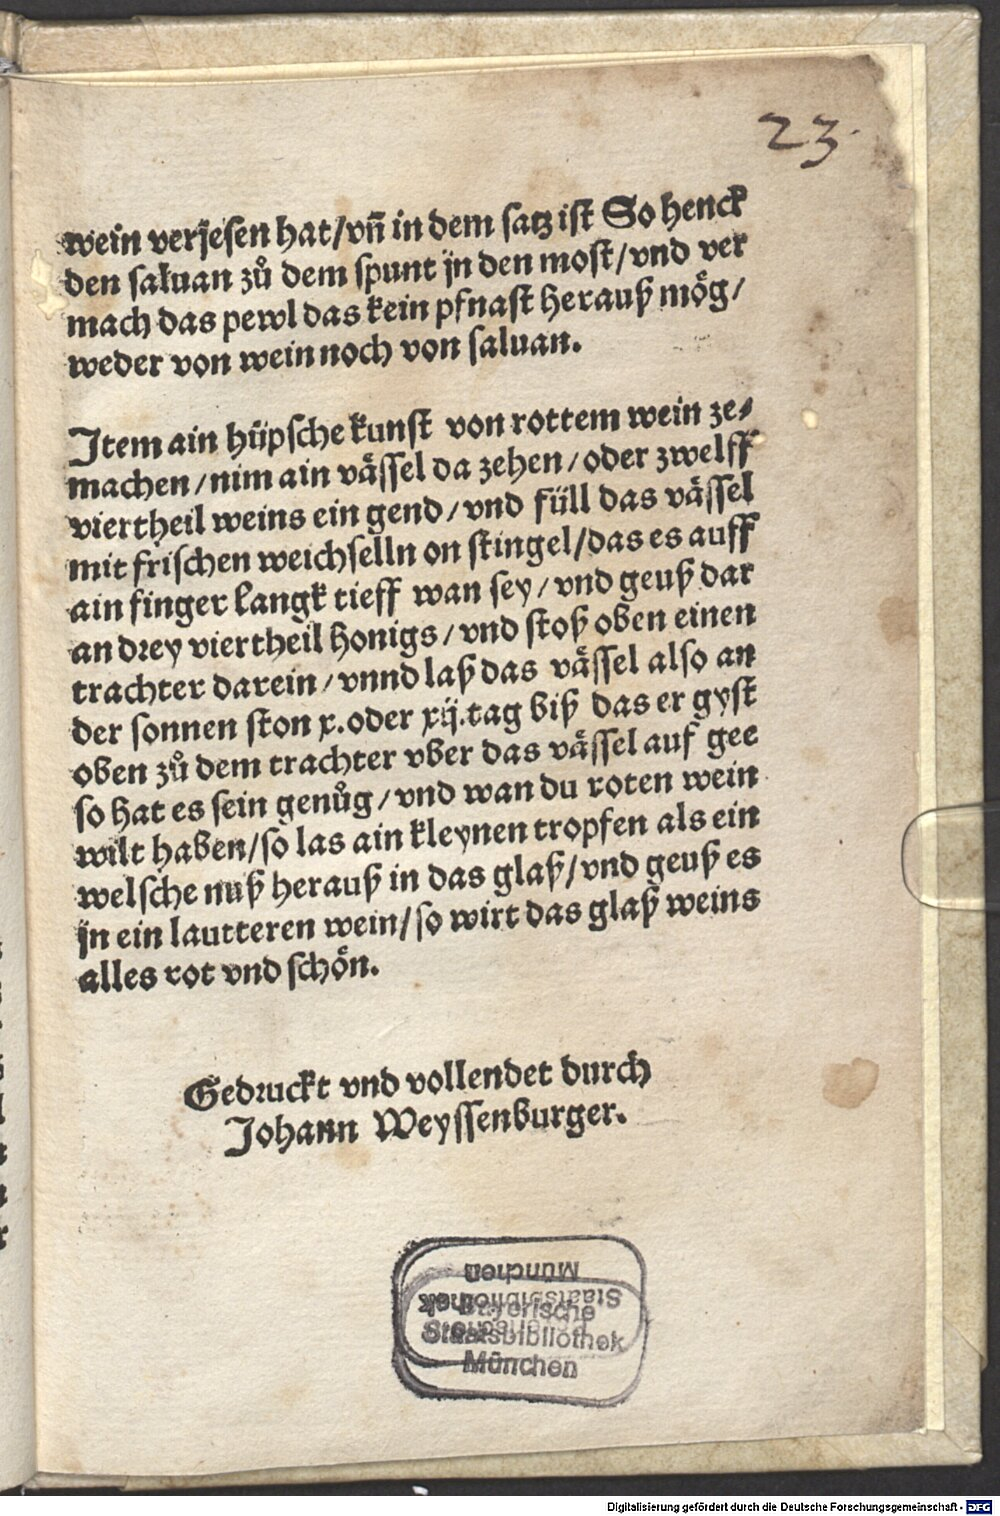 23.
wein verjesen hat/vn̄ in dem satz ist So henck
den saluan zů dem spunt jn den most/vnd ver
mach das pewl das kein pfnast herauß mög/
weder von wein noch von saluan.
Item ain hüpsche kunst von rottem wein ze⸗
machen/nim ain vässel da zehen/oder zwelff
viertheil weins ein gend/vnd füll das vässel
mit frischen weichselln on stingel/das es auff
ain finger langk tieff wan sey/vnd geuß dar
an drey viertheil honigs/vnd stoß oben einen
trachter darein/vnnd laß das vässel also an
der sonnen ston x.oder xij.tag biß das er gyst
oben zů dem trachter vber das vässel auf gee
so hat es sein genůg/vnd wan du roten wein
wilt haben/so las ain kleynen tropfen als ein
welsche nuß herauß in das glaß/vnd geuß es
jn ein lautteren wein/so wirt das glaß weins
alles rot vnd schön.
Gedruckt vnd vollendet durch
Johann Weyssenburger.
Bayerische
Staatsbibliothek
München
Digitalisierung gefördert durch die Deutsche Forschungsgemeinschaft - DFG